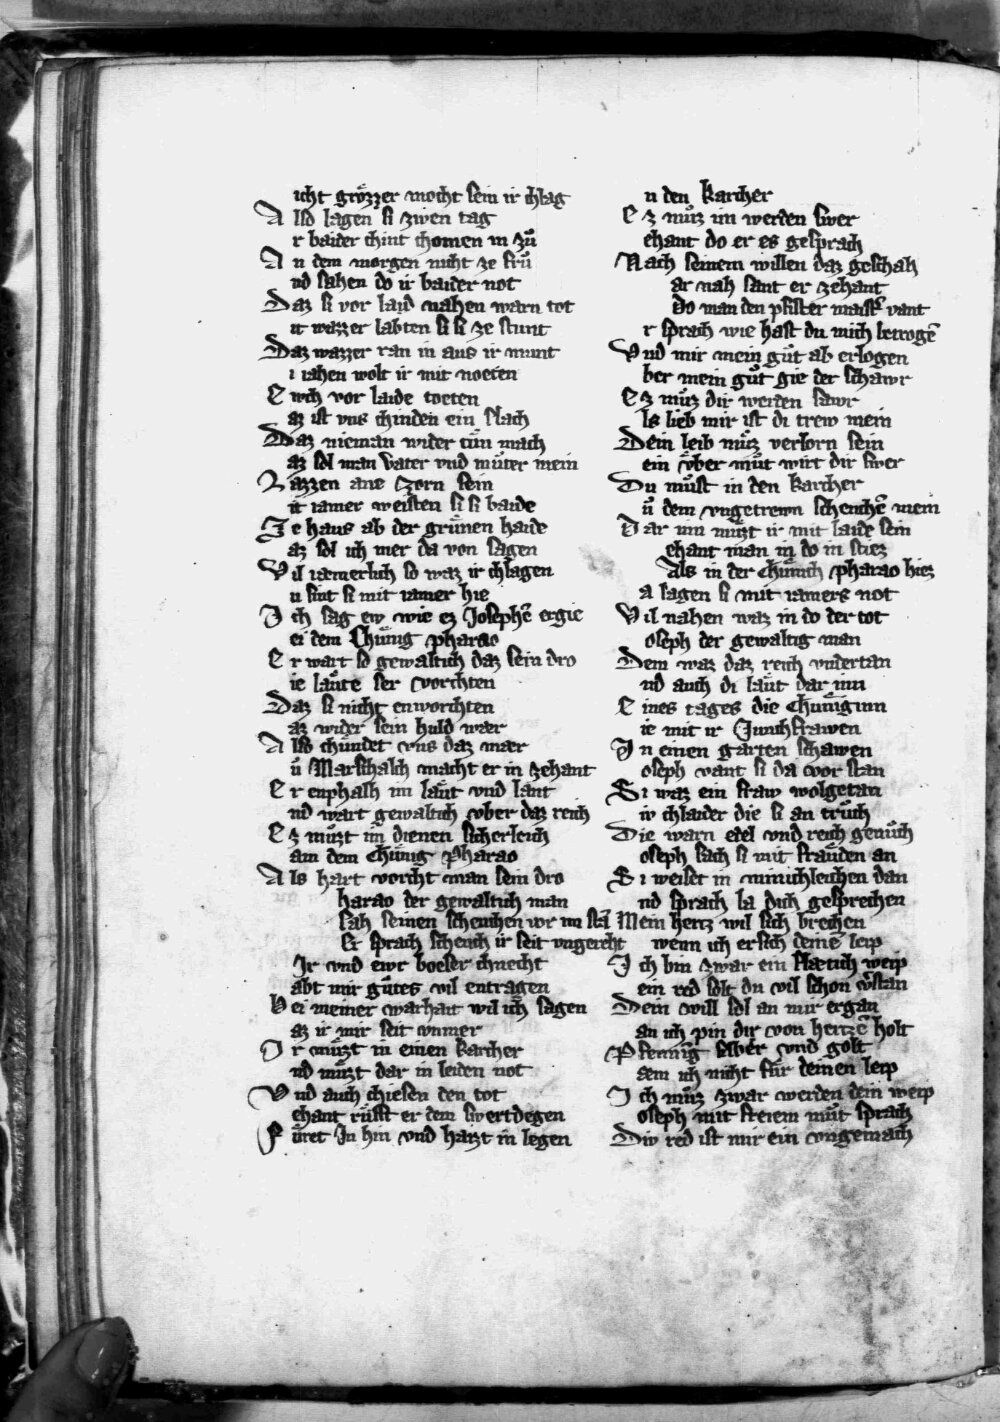 icht grözzer mocht sein ir chlag
Also lagen si zwen tag
r baider chint chomen in zů
An dem morgen nicht ze frů
nd sahen do ir baider not
Daz si vor laid nahen warn tot
it wazzer labten si si ze stunt
Daz wazzer ran in aus ir munt
i iahen wolt ir mit noeten
Ewch vor laide toeten
az ist vns chinden ein slach
Daz nieman wider tůn mach
az sol man vater vnd můter mein
Lazzen ane zorn sein
it iamer weisten si si baide
Ze haus ab der grůnen haide
az sol ich mer da von sagen
Vil iæmerlich so waz ir chlagen
u sint si mit iamer hie
Ich sag ew wie ez Josephē ergie
ei dem Chůnig pharao
Er wart so gewaltich daz sein dro
ie laůte ser vorchten
Daz si nicht enworchten
az wider sein huld wær
Also chůndet vns daz mær
ů Marschalch macht er in zehant
Er enphalh im laůt vnd lant
nd wart gewaltich vber daz reich
Ez můzt im dienen sicherleich
am dem Chůnig Pharao
Als hart vorcht man sein dro
harao der gewaltich man
sah seinen schenchen vor im stā
Er sprach schench ir seit vngerecht
Ir vnd ewr boeser chnecht
abt mir gůtes vil entragen
Bei meiner warhait wil ich sagen
az ir mir seit vnmer
Ir můzt in einen karcher
nd můzt dar in leiden not
Vnd auch chiesen den tot
ehant růfft er dem swertdegen
Fůret In hin vnd haizt in legen
n den karcher
Ez můz im werden swer
ehant do er es gesprach
Nach seinem willen daz geschah
ar nah sant er zehant
do man den pfister maistˀ vant
r sprach wie hast du mich betrogē
Vnd mir mein gůt ab erlogen
ber mein gůt gie der schawr
Ez můz dir werden sawr
ls lieb mir ist di trew mein
Dein leib můz verlorn sein
ein vber můt wirt dir swer
Du můst in den karcher
ů dem vngetrewn schenchē mein
Dar inn můzt ir mit laide sein
ehant man in do in stiez
Als in der Chůnich pharao hiez
a lagen si mit iamers not
Vil nahen waz in do der tot
oseph der gewaltig man
Dem waz daz reich vndertan
nd auch di laůt dar inn
Eines tages die Chůniginn
ie mit ir Junchfrawen
In einen garten schawen
oseph vant si da vor stan
Si waz ein fraw wolgetan
iv chlaider die si an trůch
Die warn edel vnd reich genůch
oseph sach si mit fraůden an
Si weiset in minichleichen dan
nd sprach la dich gesprechen
Mein hertz wil sich brechen
wenn ich ersich deinē leip
Ich bin zwar ein stætich weip
ein red solt du vil schon vˀstan
Dein will sol an mir ergan
an ich pin dir von hertzē holt
Pfennig silber vnd golt
dem ich nicht für deinen leip
Ich můz zwar werden dein weip
oseph mit stetem můt sprach
Div red ist mir ein vngemach